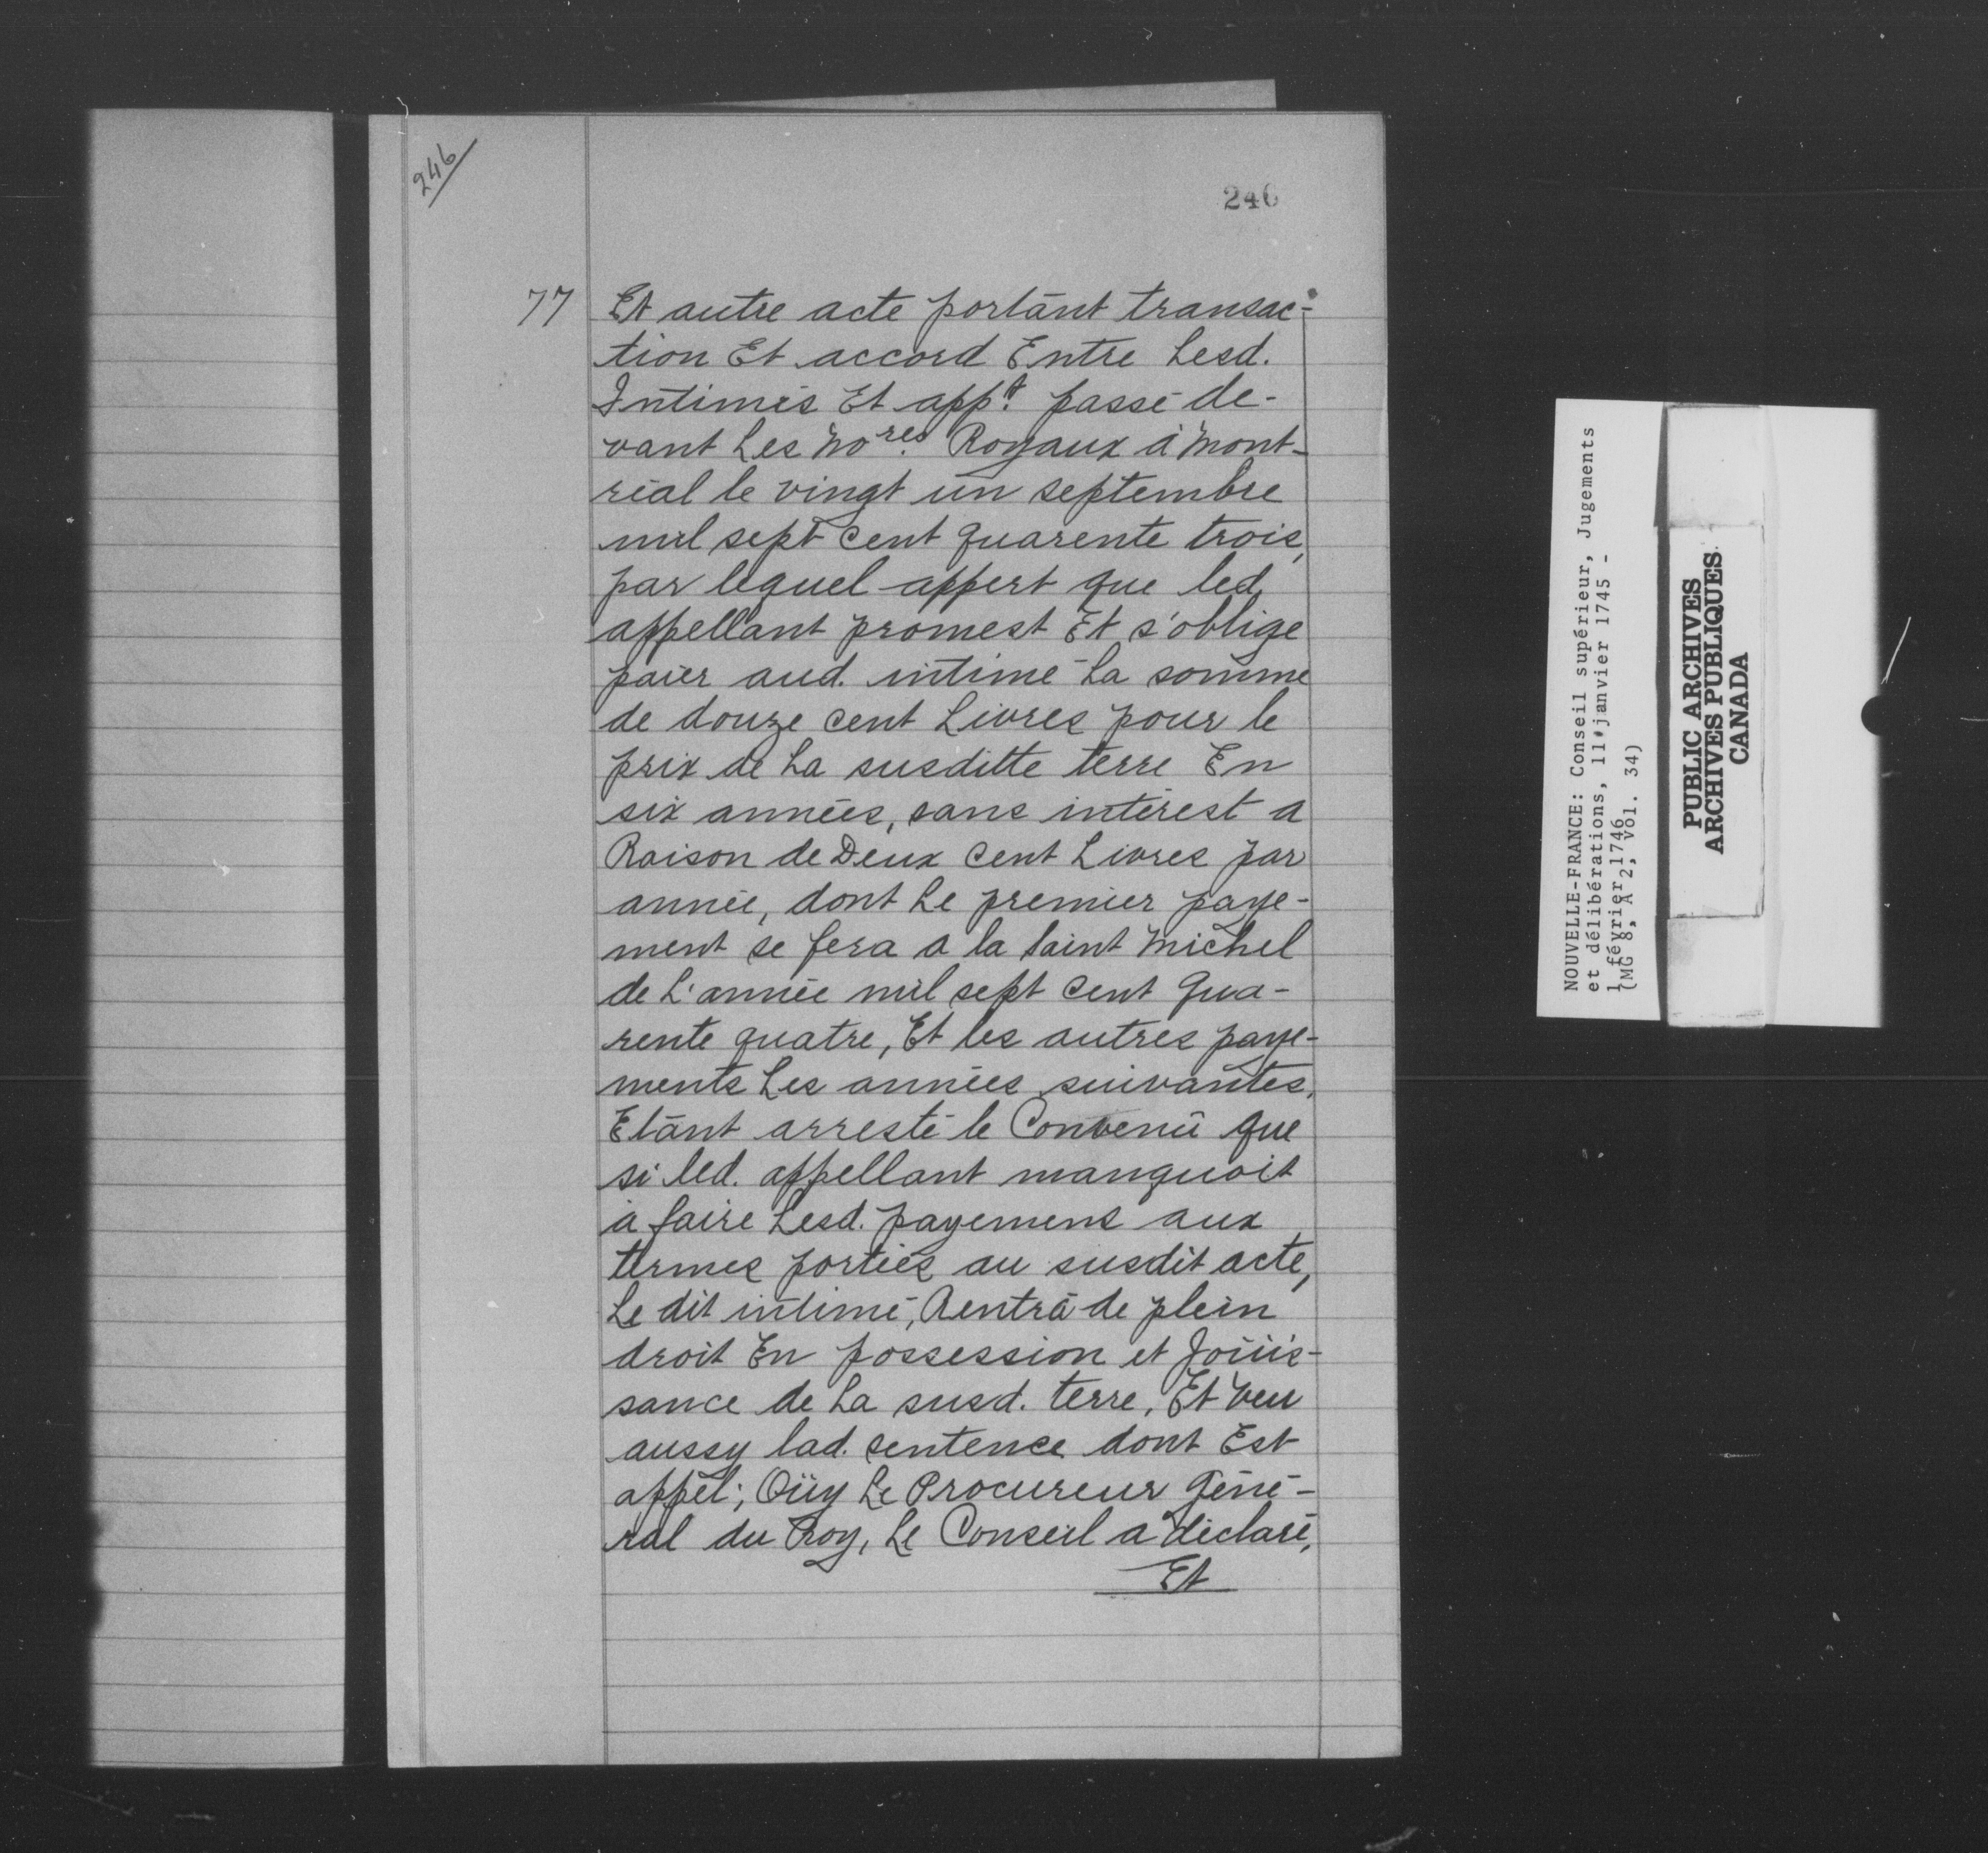 246
246
77
Et autre acte portant transac-
tion Et accord Entre Lesd.
Intimés Et app.t passé de-
vant Les No.res Royaux à Mont-
réal le vingt un septembre
mil sept cent quarente trois,
par lequel appert que led.
appellant promest Et s'oblige
païer aud. intimé La somme
de douze cent Livres pour le
prix de La susditte terre En
six années, sans intérest a
Raison de Deux cent Livres par
année, dont Le premier paye-
ment se fera a la Saint Michel
de L'année mil sept cent qua-
rente quatre, Et les autres paye-
ments Les années suivantes.
Etant arresté le Convenû que
si led. appellant manquoit
à faire Lesd. payemens aux
termes portées au susdit acte,
Le dit intimé, Rentrâ de plein
droit En possession et Joüis-
sance de La susd. terre, Et veu
aussy lad. sentence dont Est
appël; Oüy Le Procureur Géné-
ral du Roy, Le Conseil a déclaré,
Et
NOUVELLE-FRANCE: Conseil supérieur, Jugements
et délibérations, 11 janvier 1745 -
1 février 1746
(MG 8, A 2, vol. 34)
PUBLIC ARCHIVES
ARCHIVES PUBLIQUES
CANADA